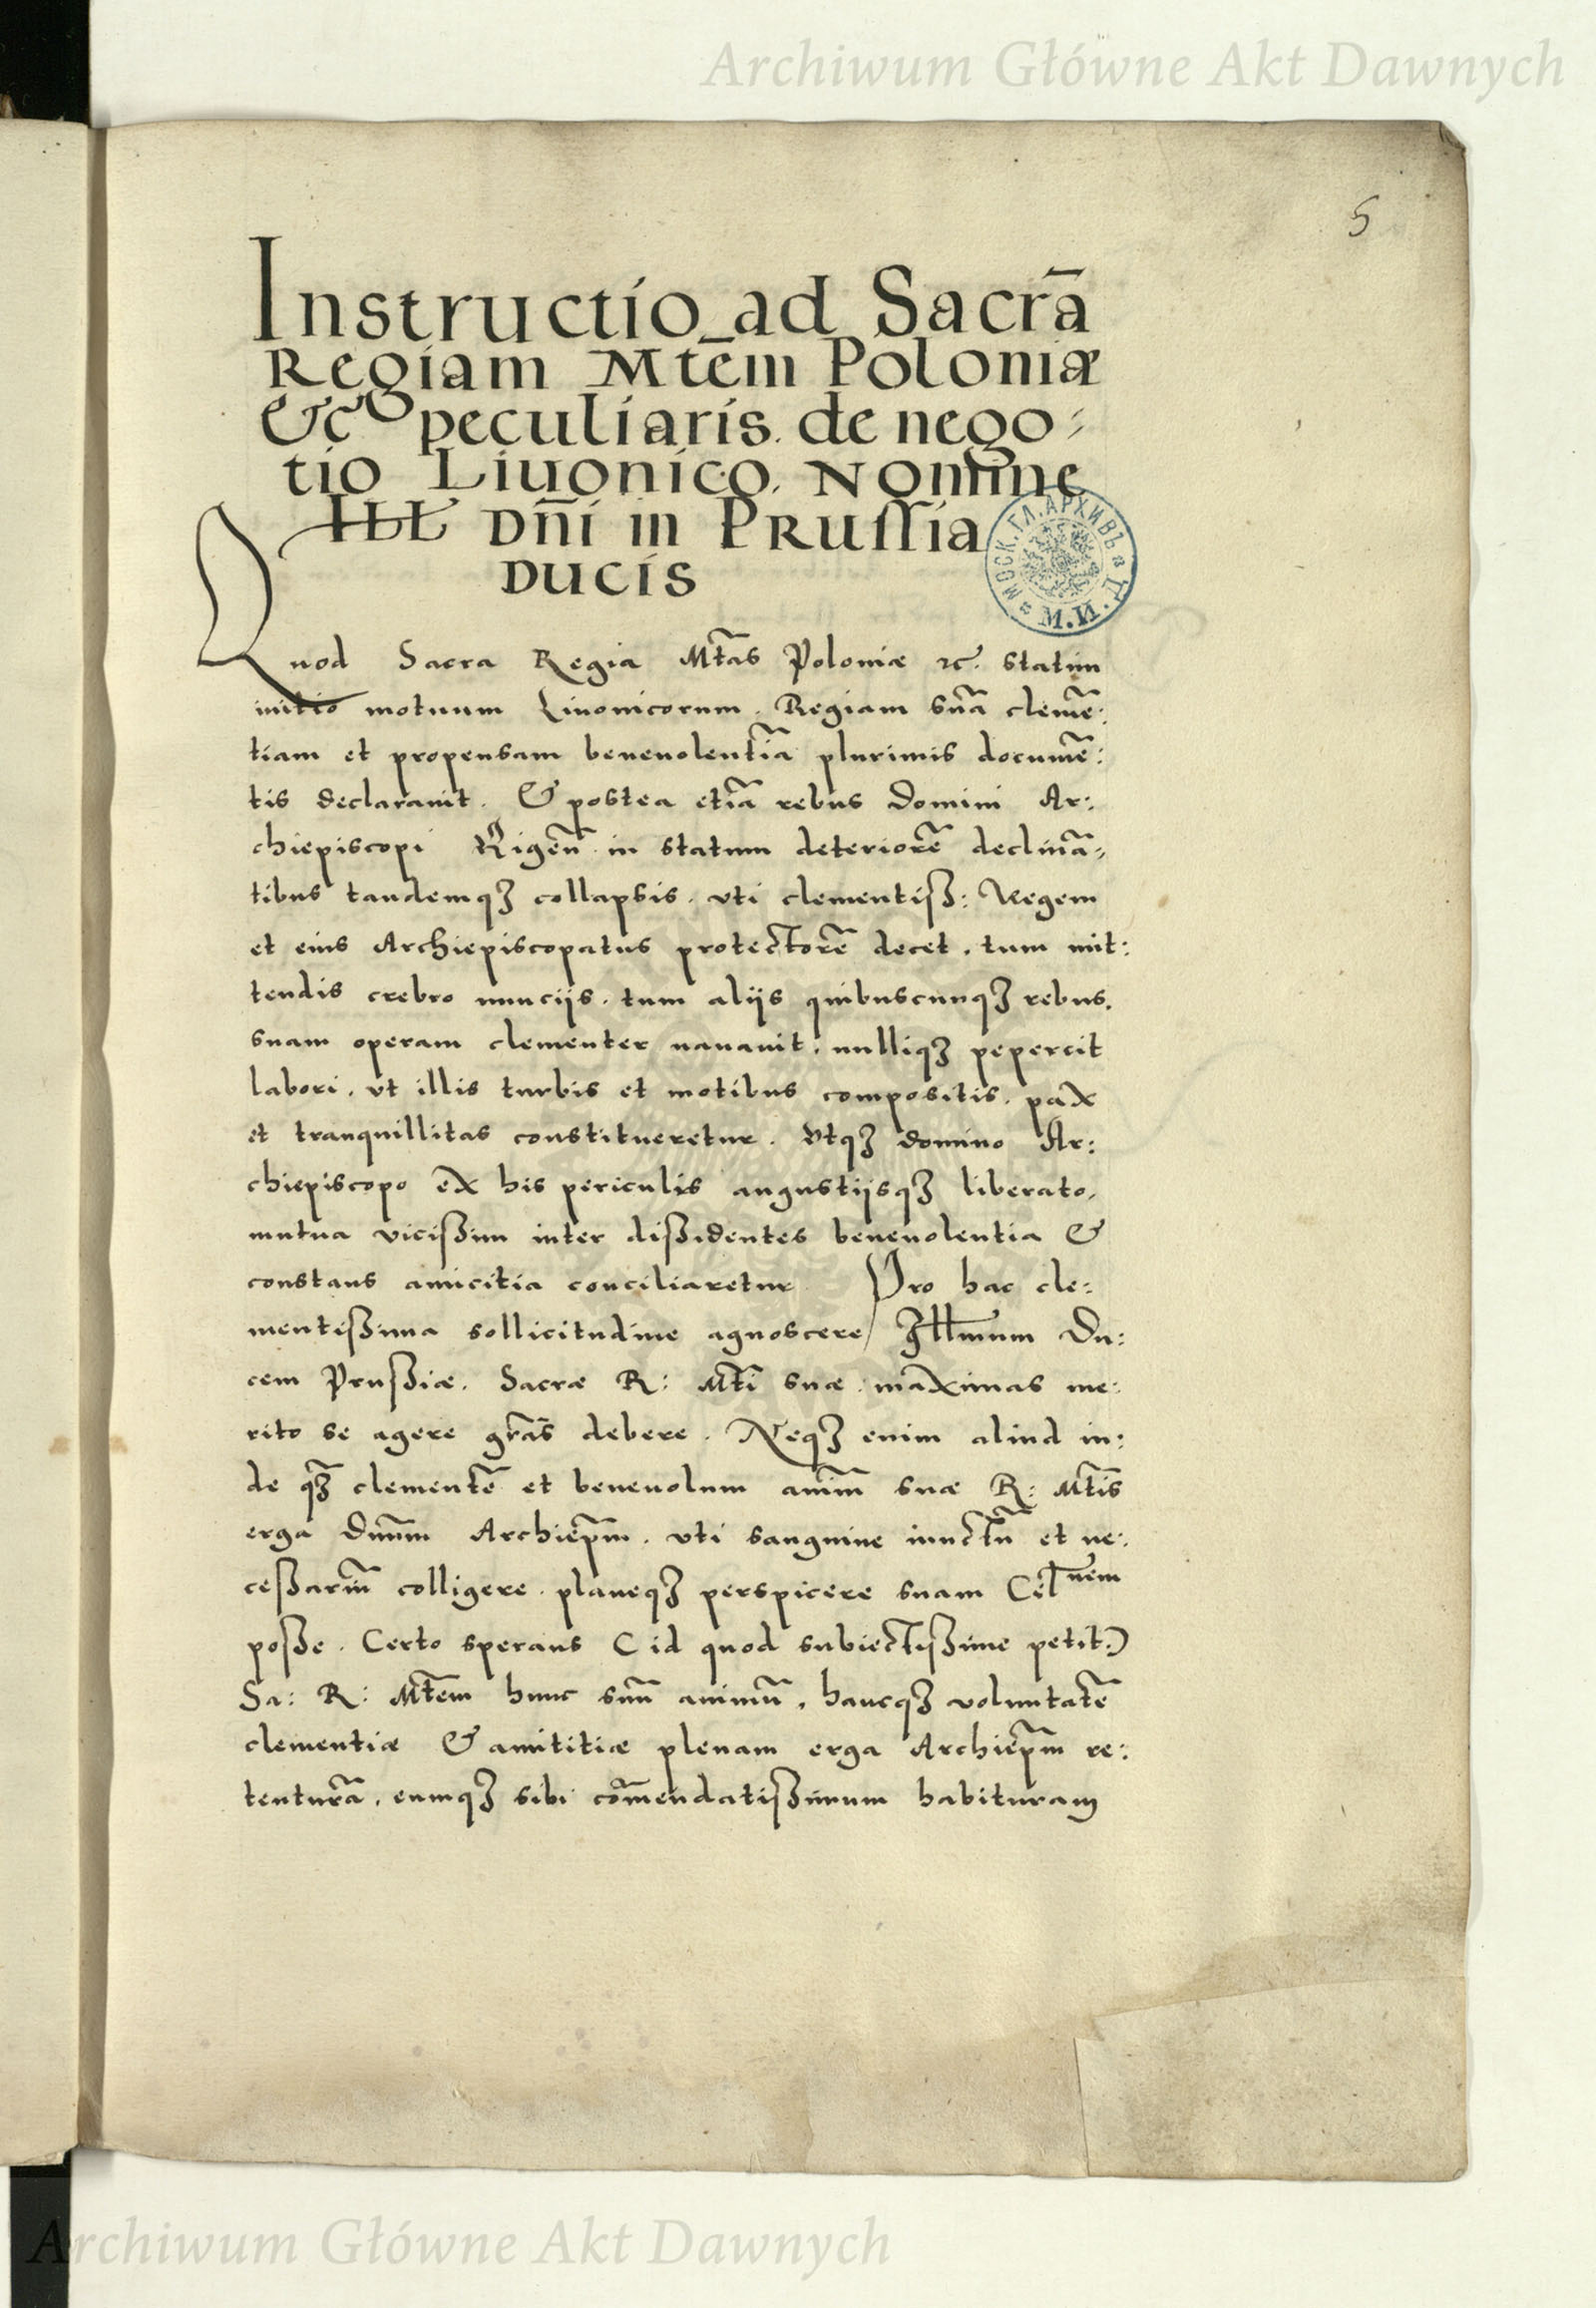 Archiwum Główne Akt Dawnych
5
Instructio ad Sacrã
Regiam Mtẽm Poloniæ
&c̃ peculiaris. de nego:
tio Liuonico. Nomine
Ill Dñi in Prussia
Ducis
МОСК. ГЛ. АРХИВЪ М. И. Д.
Quod Sacra Regia Mtãs Poloniæ ꝛc. statim
initio motuum Liuonicorum. Regiam suã clemẽ:
tiam et propensam beneuolentiã plurimis documẽ:
tis declarauit. & postea etiã rebus Domini Ar:
chiepiscopi Rigeñ in statum deteriorẽ declinã:
tibus tandemqꝫ collapsis. vti clementiß: Regem
et eius Archiepiscopatus protectorẽ decet. tum mit:
tendis crebro nunciis. tum aliis quibuscunqꝫ rebus.
suam operam clementer nauauit. nulliqꝫ pepercit
labori. vt illis turbis et motibus compositis. pax
et tranquillitas constitueretur. Vtqꝫ domino Ar:
chiepiscopo ex his periculis angustiisqꝫ liberato,
mutua vicißim inter dißidentes beneuolentia &
constans amicitia conciliaretur Pro hac cle:
mentißima sollicitudine agnoscere/ Illmum Du:
cem Prußiæ. Sacræ R: Mtĩ suæ. maximas me:
rito se agere grãs debere. Neqꝫ enim aliud in:
de qꝫ̃ clementẽ et beneuolum anim̃ suæ R: Mtĩs
erga Dnũm Archiep̃m. vti sanguine iunctũ et ne:
ceßarim̃ colligere. planeqꝫ perspicere suam Cel̃nem
poße. Certo sperans (id quod subiectißime petit:)
Sa: R: Mtẽm hunc suũ animũ, hancqꝫ voluntatẽ
clementiæ & amititiæ plenam erga Archiep̃m re:
tenturã, eumqꝫ sibi com̃endatißimum habituram
Archiwum Główne Akt Dawnych